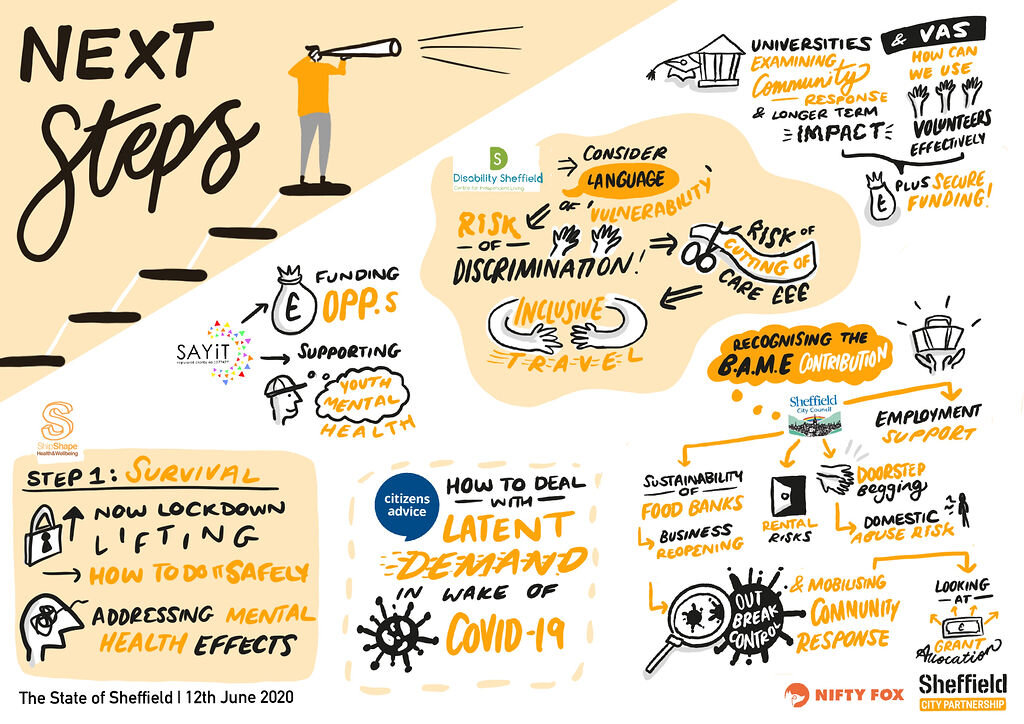 NEXT
Steps
UNIVERSITIES
EXAMINING
Community
RESPONSE
& LONGER TERM
IMPACT
& VAS
HOW CAN
WE USE
VOLUNTEERS
EFFECTIVELY
£
PLUS SECURE
FUNDING!
Disability Sheffield
Centre for Independent Living
CONSIDER
LANGUAGE
OF 'VULNERABILITY'
RISK
OF
DISCRIMINATION!
RISK OF
CUTTING OF
CARE £££
INCLUSIVE
TRAVEL
SAYiT
£
FUNDING
OPP.S
SUPPORTING
YOUTH
MENTAL
HEALTH
ShipShape
Health&Wellbeing
STEP 1: SURVIVAL
NOW LOCKDOWN
LIFTING
HOW TO DO IT SAFELY
ADDRESSING MENTAL
HEALTH EFFECTS
citizens
advice
HOW TO DEAL
WITH
LATENT
DEMAND
IN WAKE OF
COVID-19
RECOGNISING THE
B.A.M.E CONTRIBUTION
Sheffield
City Council
EMPLOYMENT
SUPPORT
SUSTAINABILITY
OF
FOOD BANKS
BUSINESS
REOPENING
RENTAL
RISKS
DOORSTEP
begging
DOMESTIC
ABUSE RISK
OUT
BREAK
CONTROL
& MOBILISING
COMMUNITY
RESPONSE
LOOKING
AT
£
GRANT
Allocation
The State of Sheffield | 12th June 2020
NIFTY FOX
Sheffield
CITY PARTNERSHIP